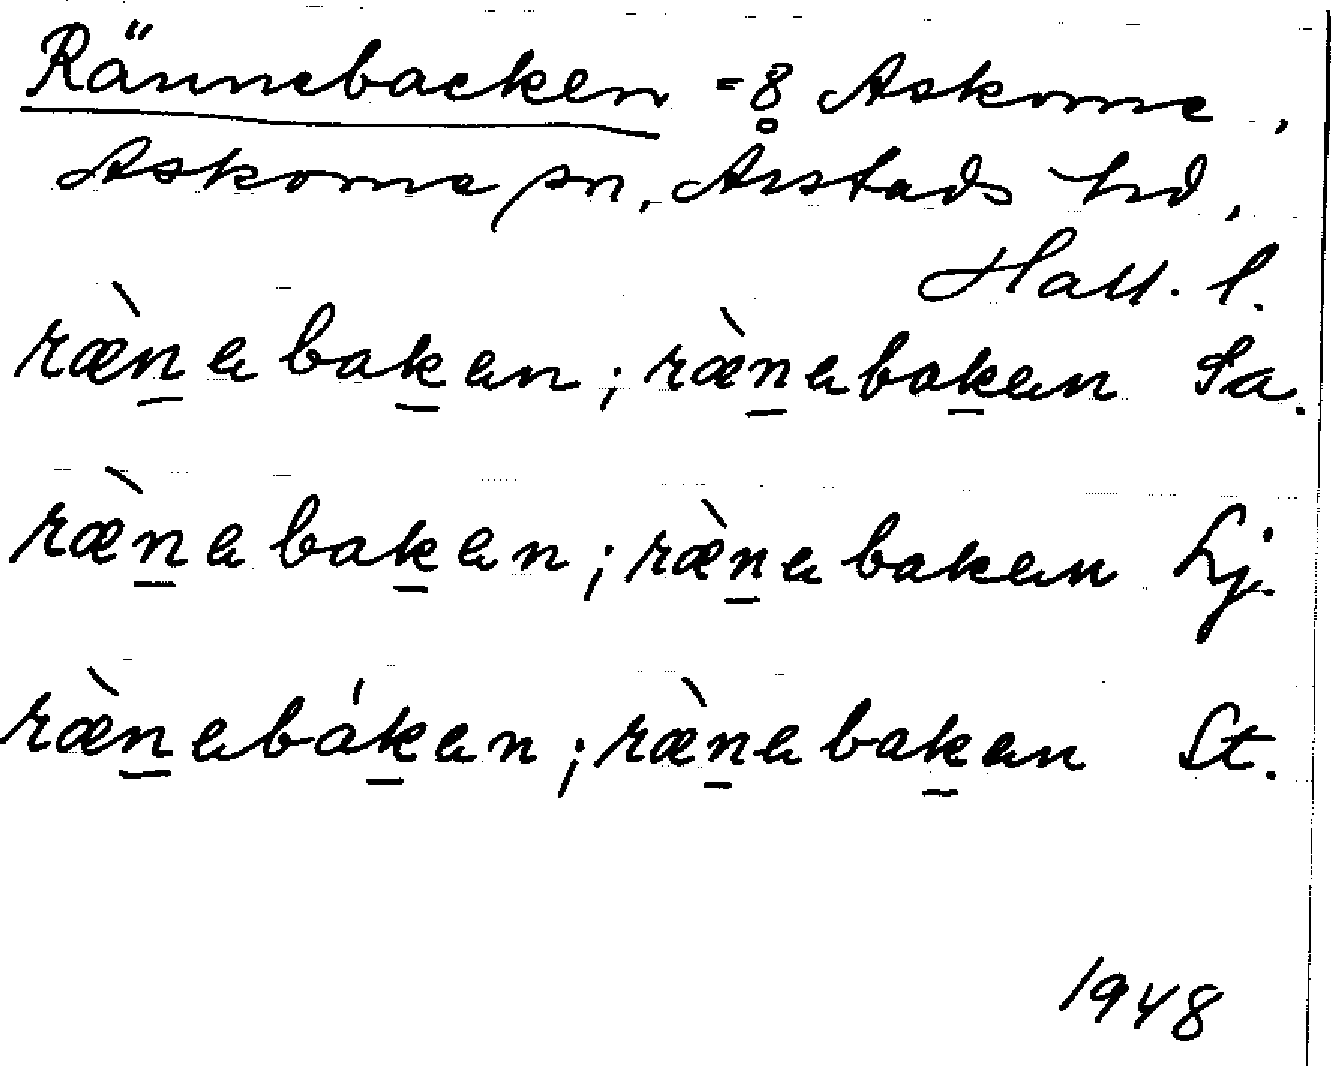 Rännebacken -8 Askome,
Askome sn, Årstads hd,
Hall. l.
ræ̀nebaken; ræ̀nebaken Sa.
ræ̀nebaken; ræ̀nebaken Lj.
ræ̀nebáken; ræ̀nebaken St.
1948